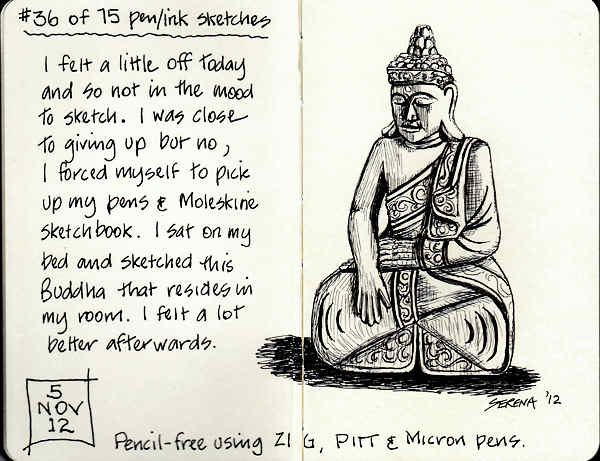 #36 of 75 pen/ink sketches
I felt a little off today
and so not in the mood
to sketch. I was close
to giving up but no,
I forced myself to pick
up my pens & Moleskine
sketchbook. I sat on my
bed and sketched this
Buddha that resides in
my room. I felt a lot
better afterwards.
5
NOV
12
SERENA '12
Pencil-free using ZIG, PITT & Micron pens.